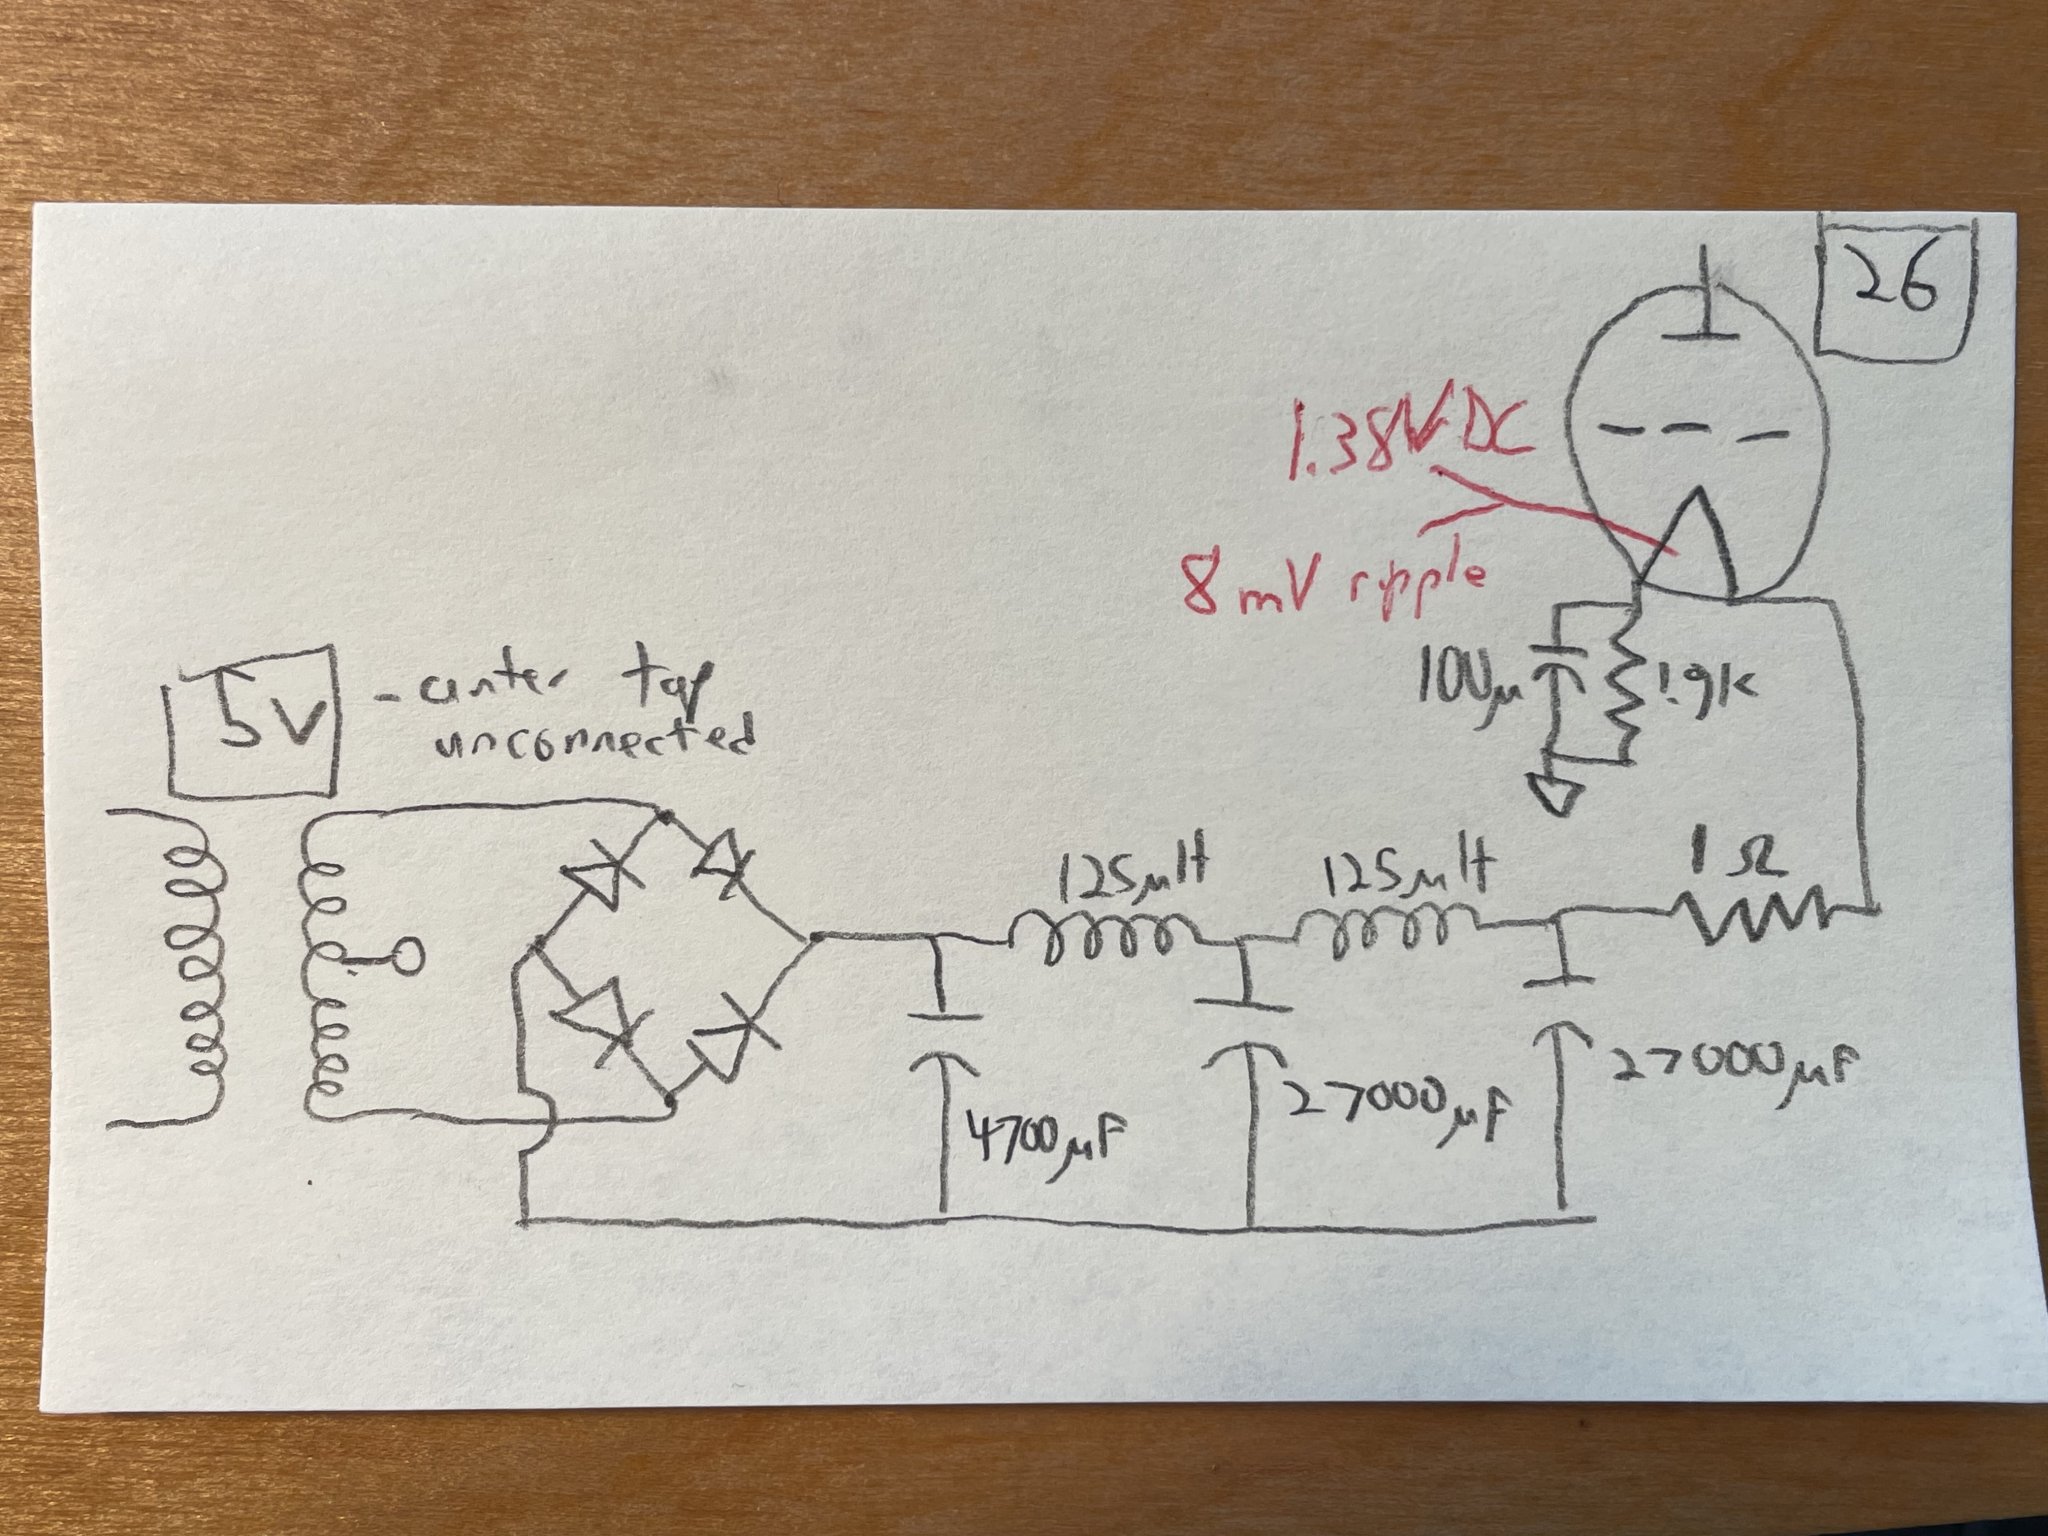 26
1.38V DC
8mV ripple
100μ
1.9K
5V
- center tap
unconnected
125μH
125μH
1Ω
4700μF
27000μF
27000μF